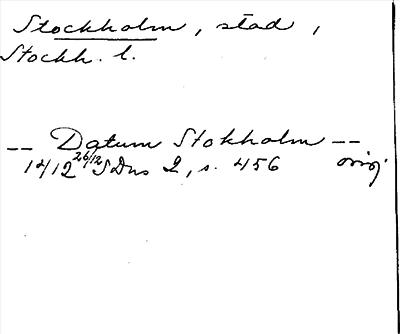 Stockholm, stad,
Stockh. l.
-- Datum Stokholm --
1412 26/12 SDns 2, s. 456 orig.